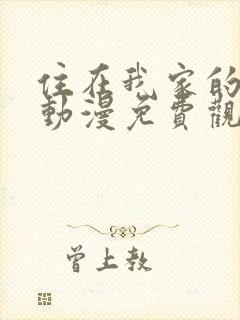 住在我家的
動漫免費觀
曾上教